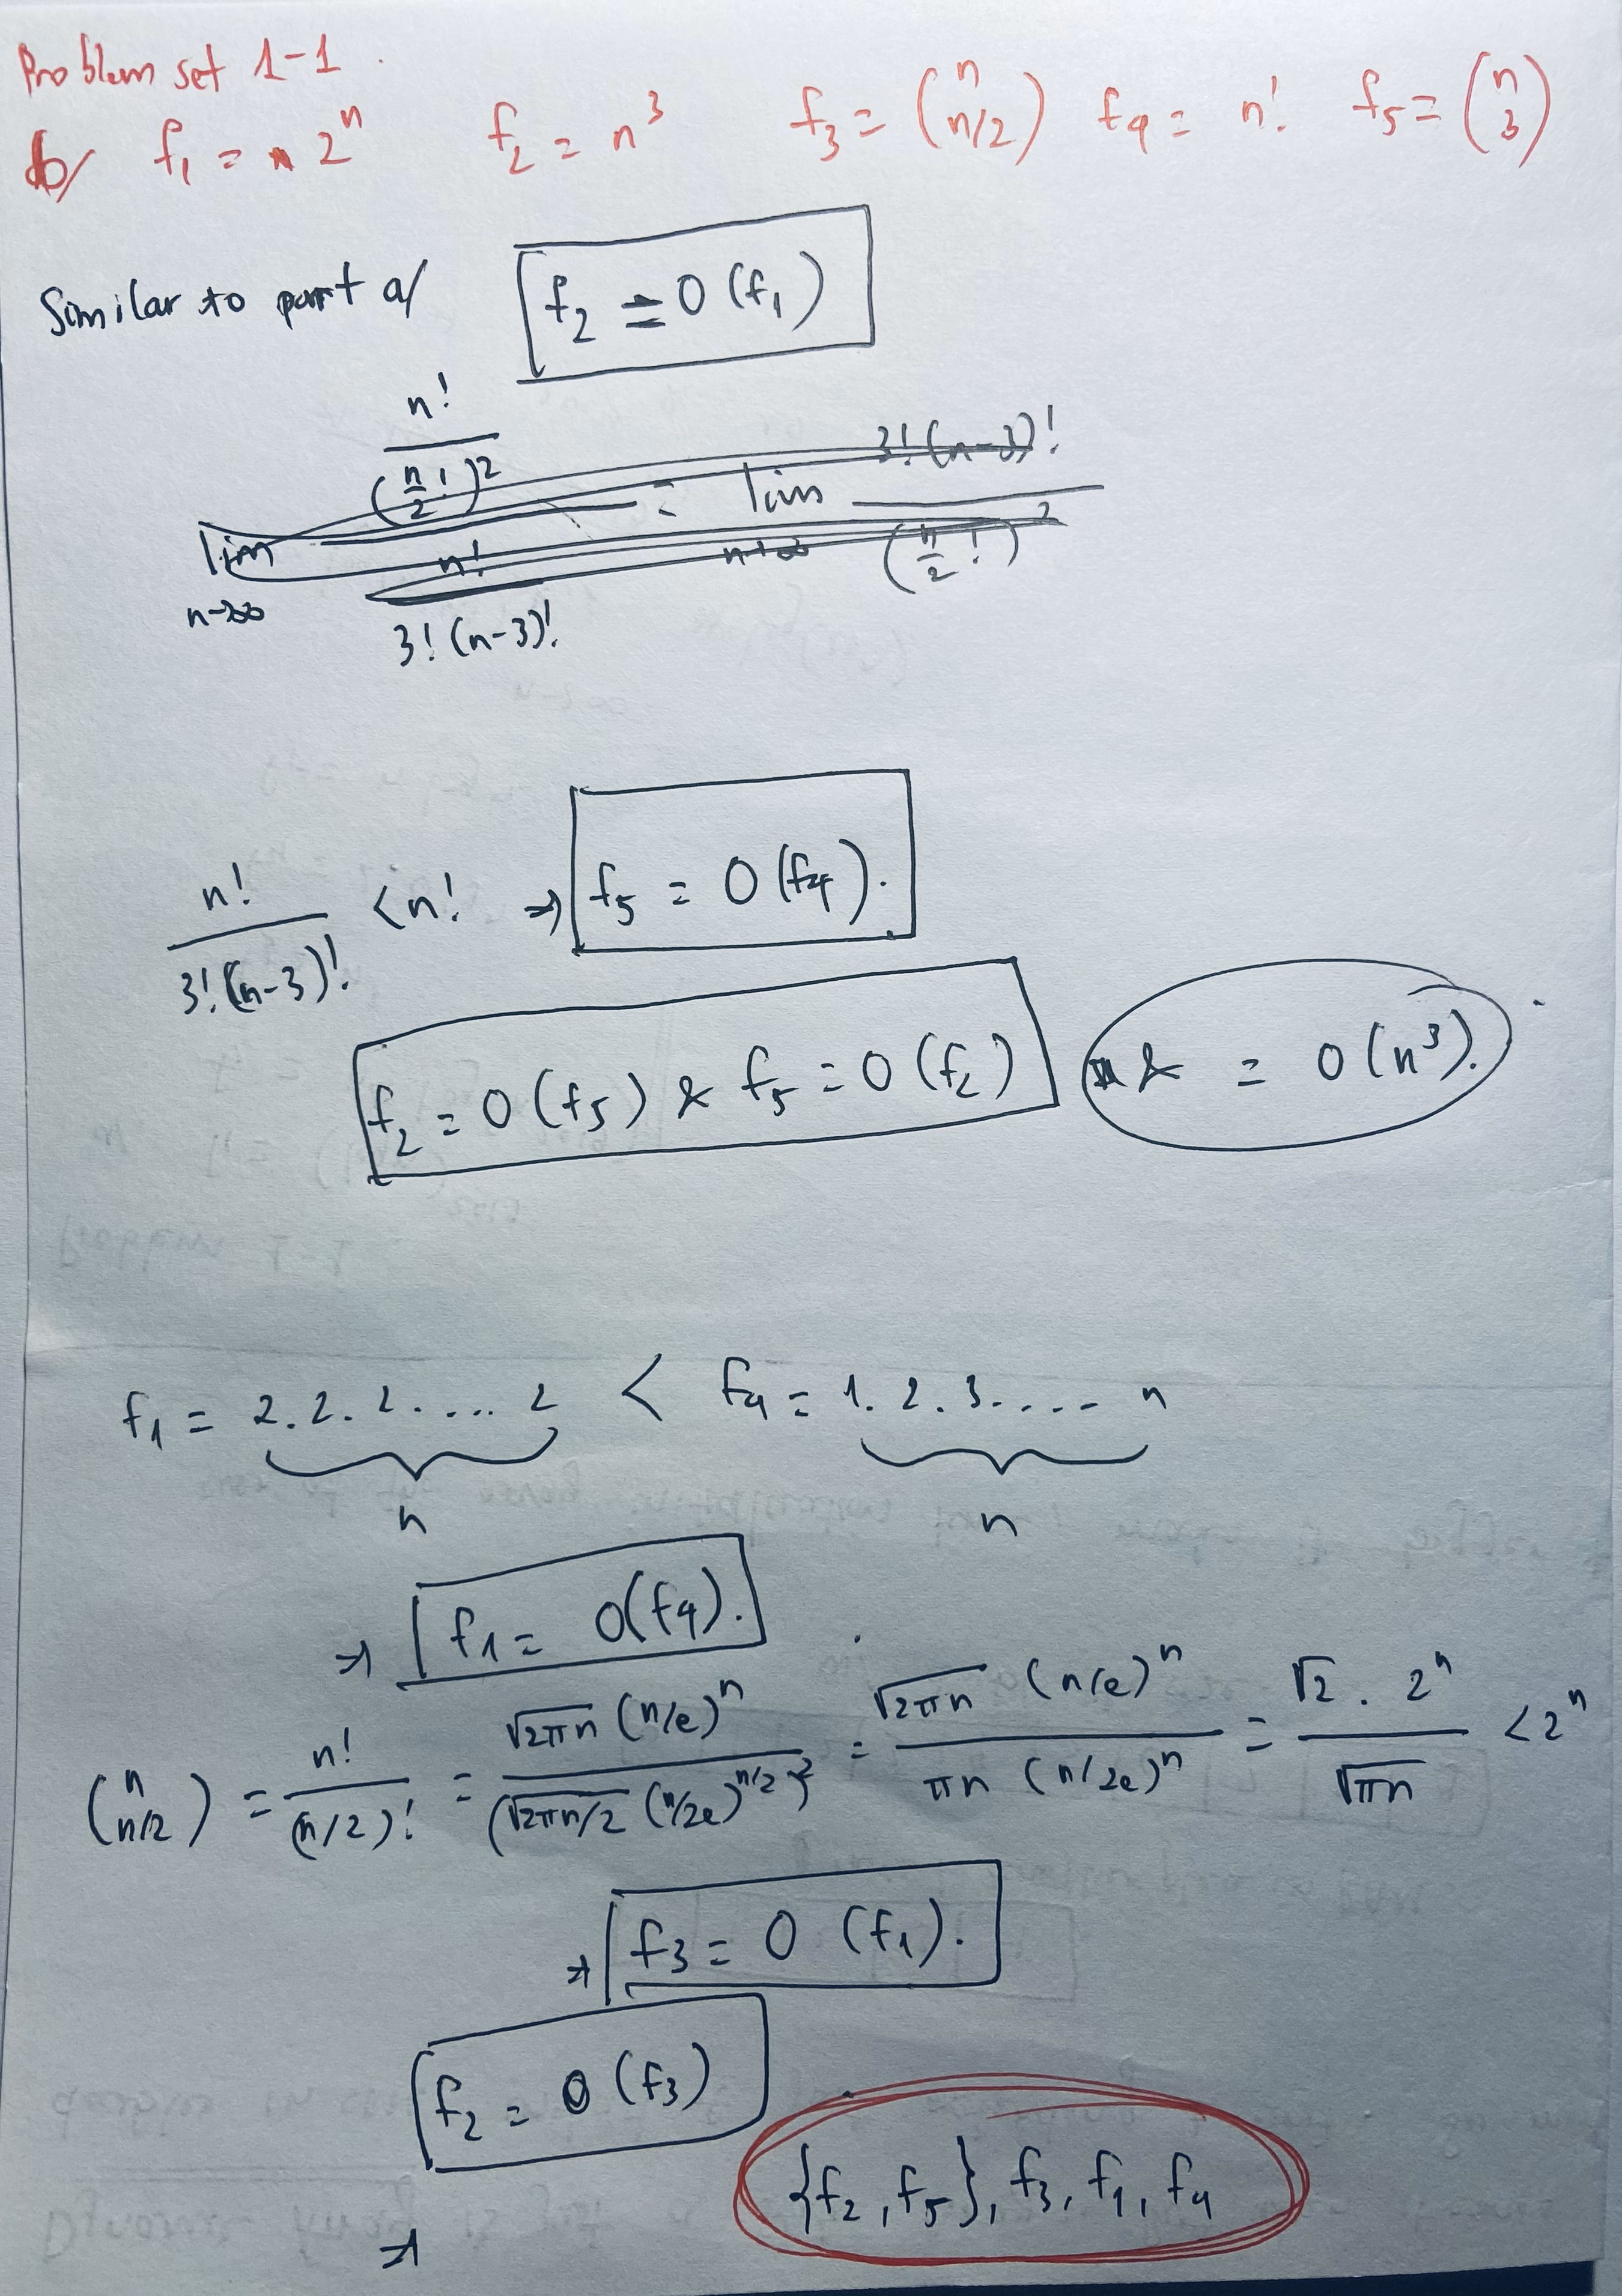 Problem set 1-1.
b/ f₁ = 2ⁿ f₂ = n³ f₃ = (n n/2) f₄ = n! f₅ = (n 3)
Similar to part a/ f₂ = O(f₁)
lim n→∞ (n! / (n/2 !)²) / (n! / 3!(n-3)!) = lim n→∞ 3!(n-3)! / (n/2 !)²
n! / 3!(n-3)! < n! ⇒ f₅ = O(f₄).
f₂ = O(f₅) & f₅ = O(f₂) & = O(n³).
f₁ = 2.2.2.... 2 < f₄ = 1.2.3.... n
n n
⇒ f₁ = O(f₄).
(n n/2) = n! / (n/2)! = √2πn (n/e)ⁿ / (√2πn/2 (n/2e)^n/2)² = √2πn (n/e)ⁿ / πn (n/2e)ⁿ = √2 . 2ⁿ / √πn < 2ⁿ
⇒ f₃ = O (f₁).
f₂ = O (f₃)
⇒ {f₂, f₅}, f₃, f₁, f₄